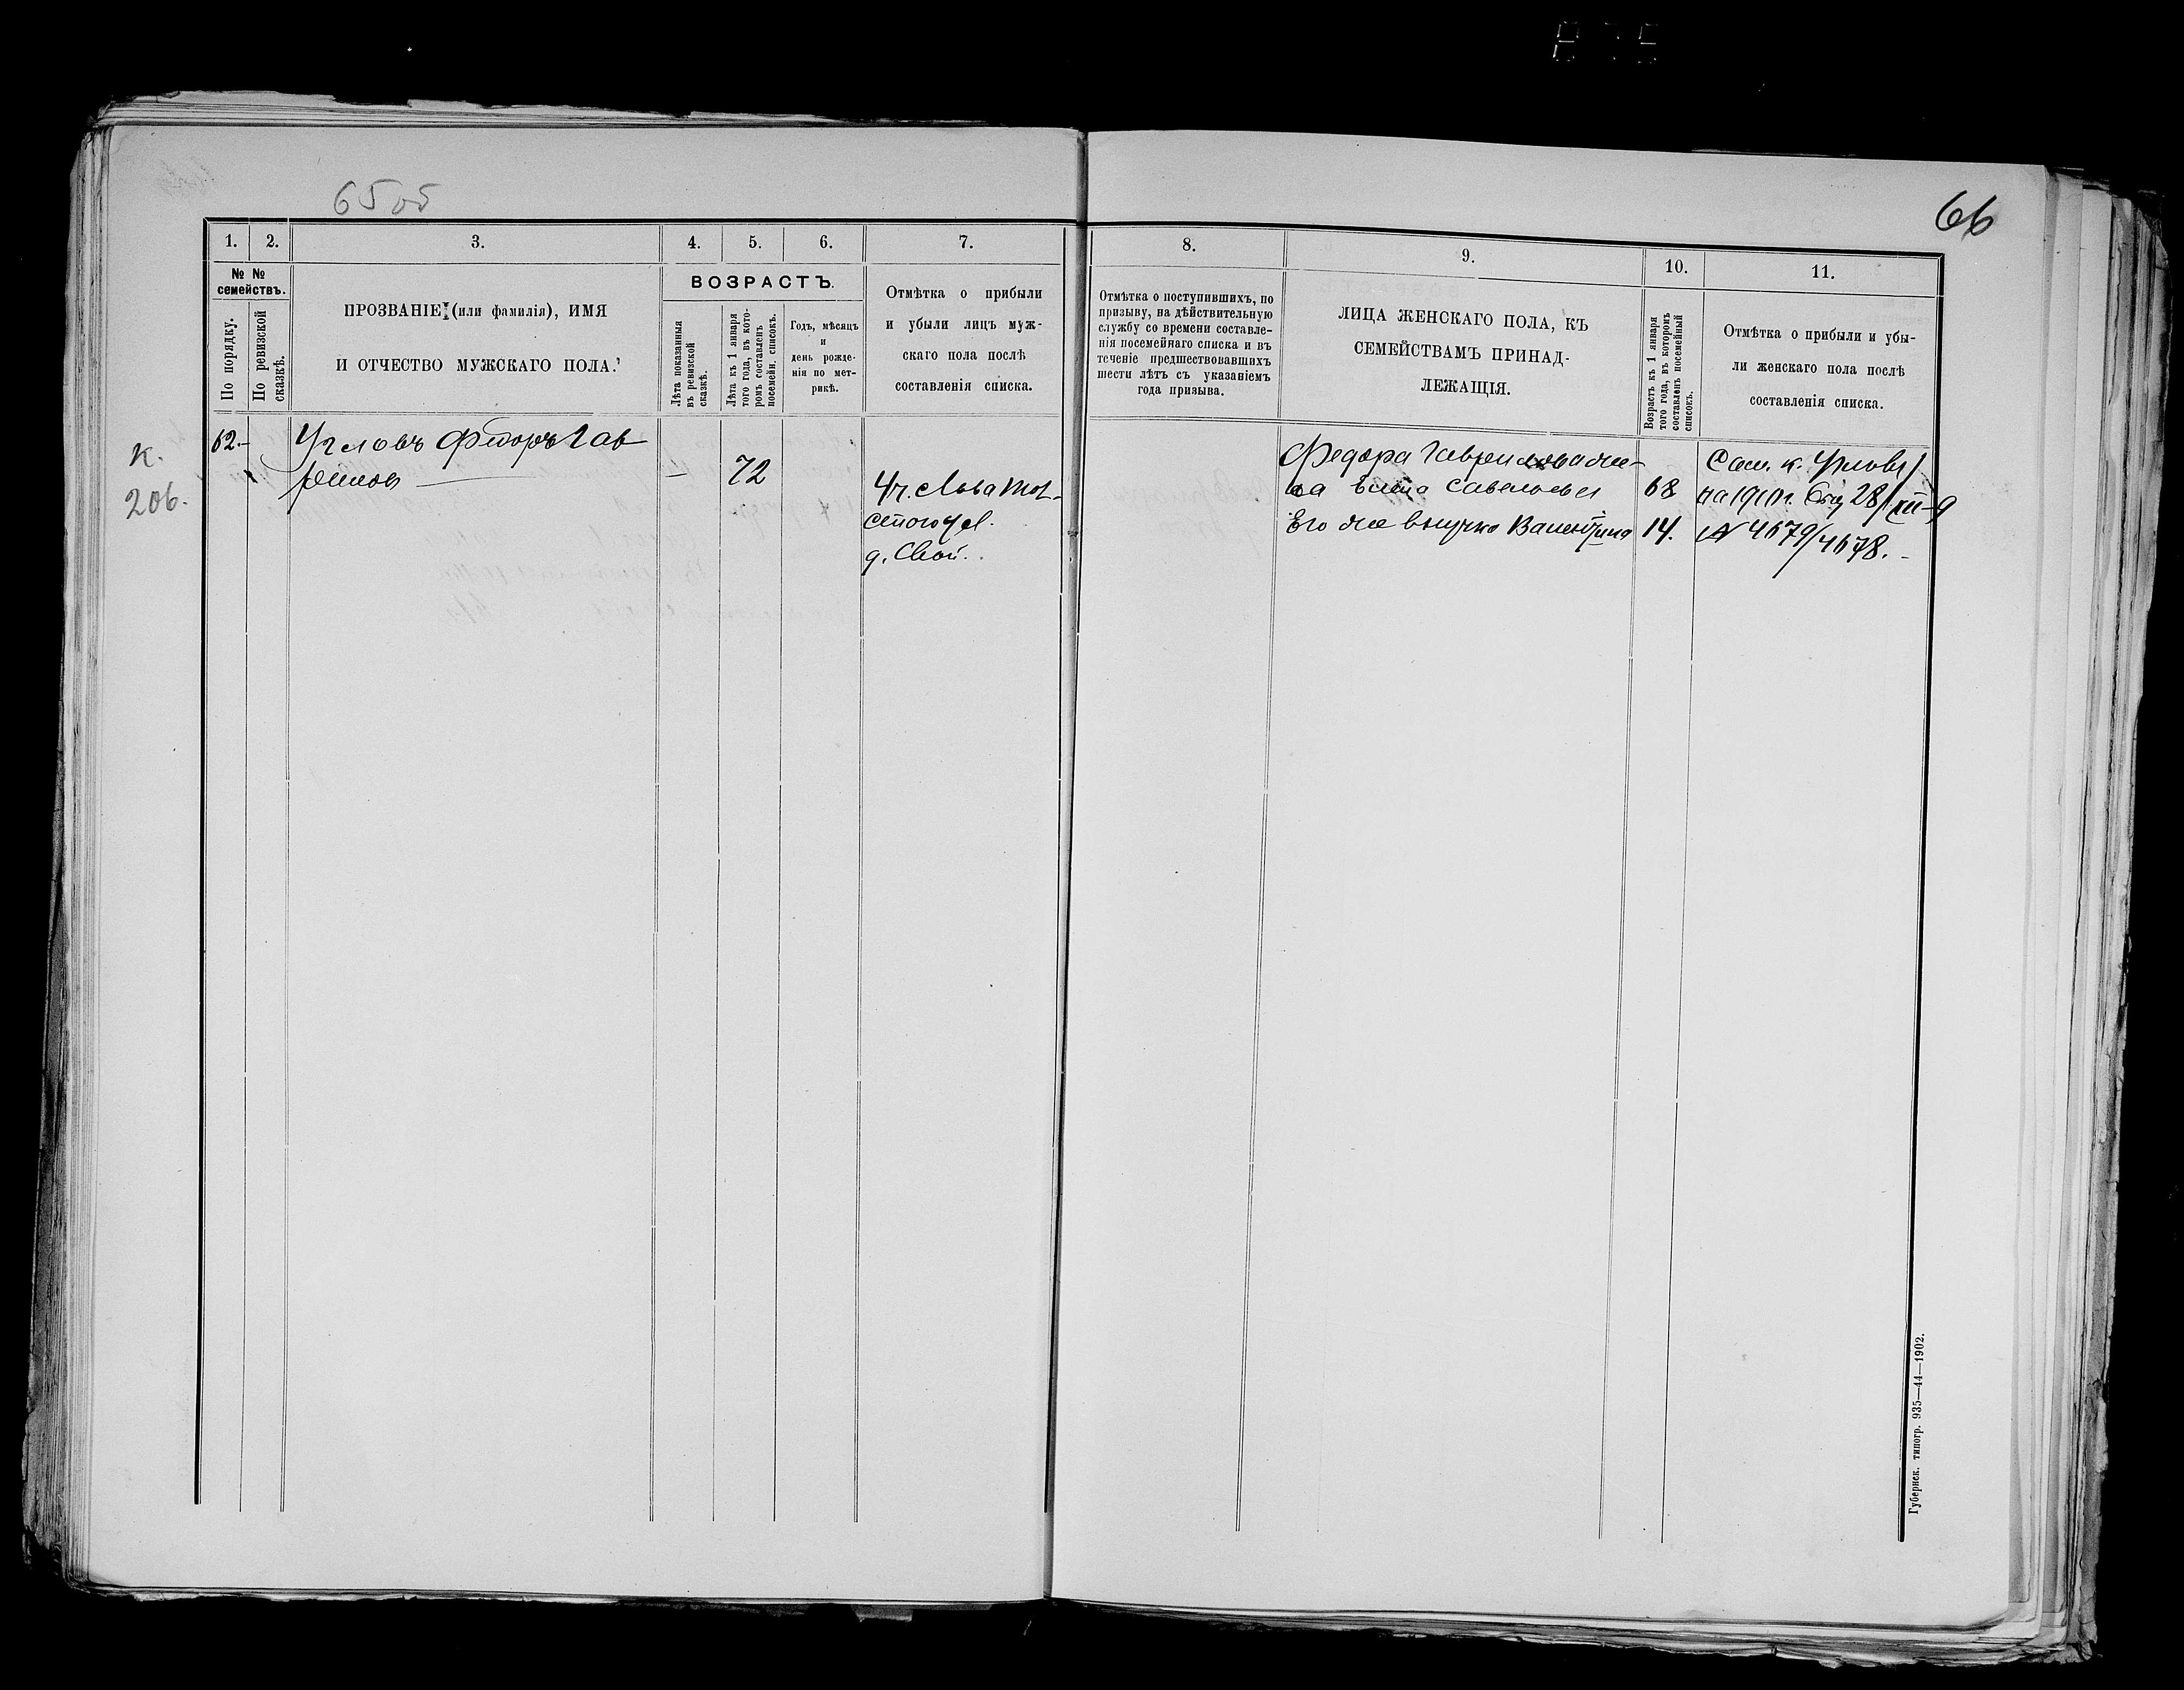 65 об
66
1. 2. 3. 4. 5. 6. 7.
№ № семействъ.
По порядку.
По ревизской сказкѣ.
ПРОЗВАНІЕ (или фамилія), ИМЯ
И ОТЧЕСТВО МУЖСКАГО ПОЛА.
ВОЗРАСТЪ.
Лѣта показанныя
въ ревизской
сказкѣ.
Лѣта къ 1 января
того года, въ кото-
ромъ составленъ
посемейн. списокъ.
Годъ, мѣсяцъ
и
день рожде-
нія по мет-
рикѣ.
Отмѣтка о прибыли
и убыли лицъ муж-
скаго пола послѣ
составленія списка.
К.
206.
62.
Угловъ Фторъ Гав
рилов
— 72
Ул. Льва Тол-
стого
д. Свой.
8. 9. 10. 11.
Отмѣтка о поступившихъ, по
призыву, на дѣйствительную
службу со времени составле-
нія посемейнаго списка и въ
теченіе предшествовавшихъ
шести лѣтъ съ указаніемъ
года призыва.
ЛИЦА ЖЕНСКАГО ПОЛА, КЪ
СЕМЕЙСТВАМЪ ПРИНАД-
ЛЕЖАЩІЯ.
Возрастъ къ 1 января
того года, въ которомъ
составленъ посемейный
списокъ.
Отмѣтка о прибыли и убы-
ли женскаго пола послѣ
составленія списка.
Федора Гаврилова же-
на Савельева 68
Его же внучка Валентина 14.
Сем. к.
на 1910 г. 28/III-9
№ 4679/4678.
Губернск. типогр. 935—44—1902.